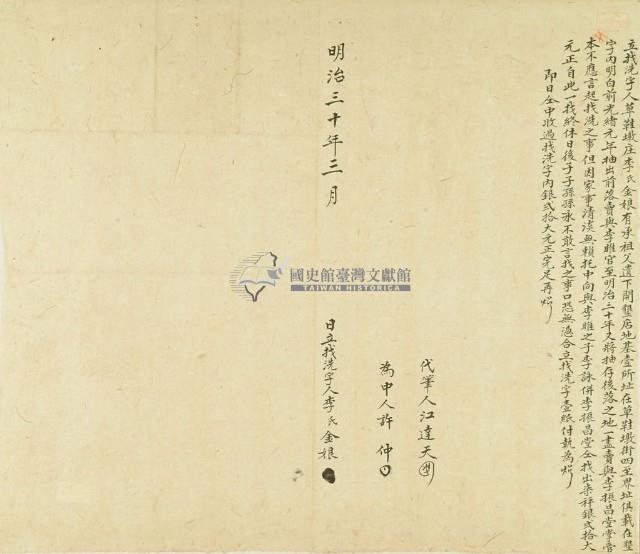 立找洗字人草鞋墩庄李氏金娘有承祖父遺下開墾店地基壹所址在草鞋墩街四至界址俱載在墾
字內明白前光緒元年抽出前落賣與李雖官至明治三十年又將抽存後落之地一盡賣與李振昌堂掌管
本不應言起找洗之事但因家事清淡無賴托中向與李雖之子李詠併李振昌堂仝找出來秤銀貳拾大
元正自此一找終休日後子子孫孫永不敢言找之事口恐無憑合立找洗字壹紙付執為炤
即日仝中收過找洗字內銀貳拾大元正完足再炤
代筆人江達天
為中人許仲
明治三十年三月
日立找洗字人李氏金娘
國史館臺灣文獻館
TAIWAN HISTORICA